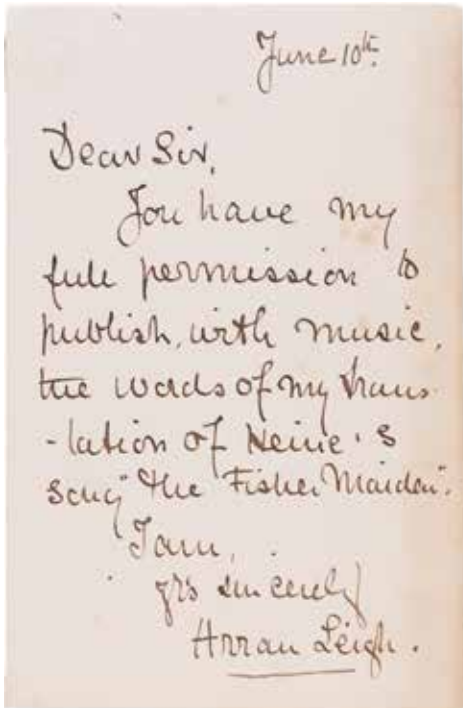 June 10th.
Dear Sir,
You have my
full permission to
publish, with music,
the words of my trans
-lation of Heine's
song "the Fisher Maiden".
I am,
yrs sincerely
Arran Leigh.